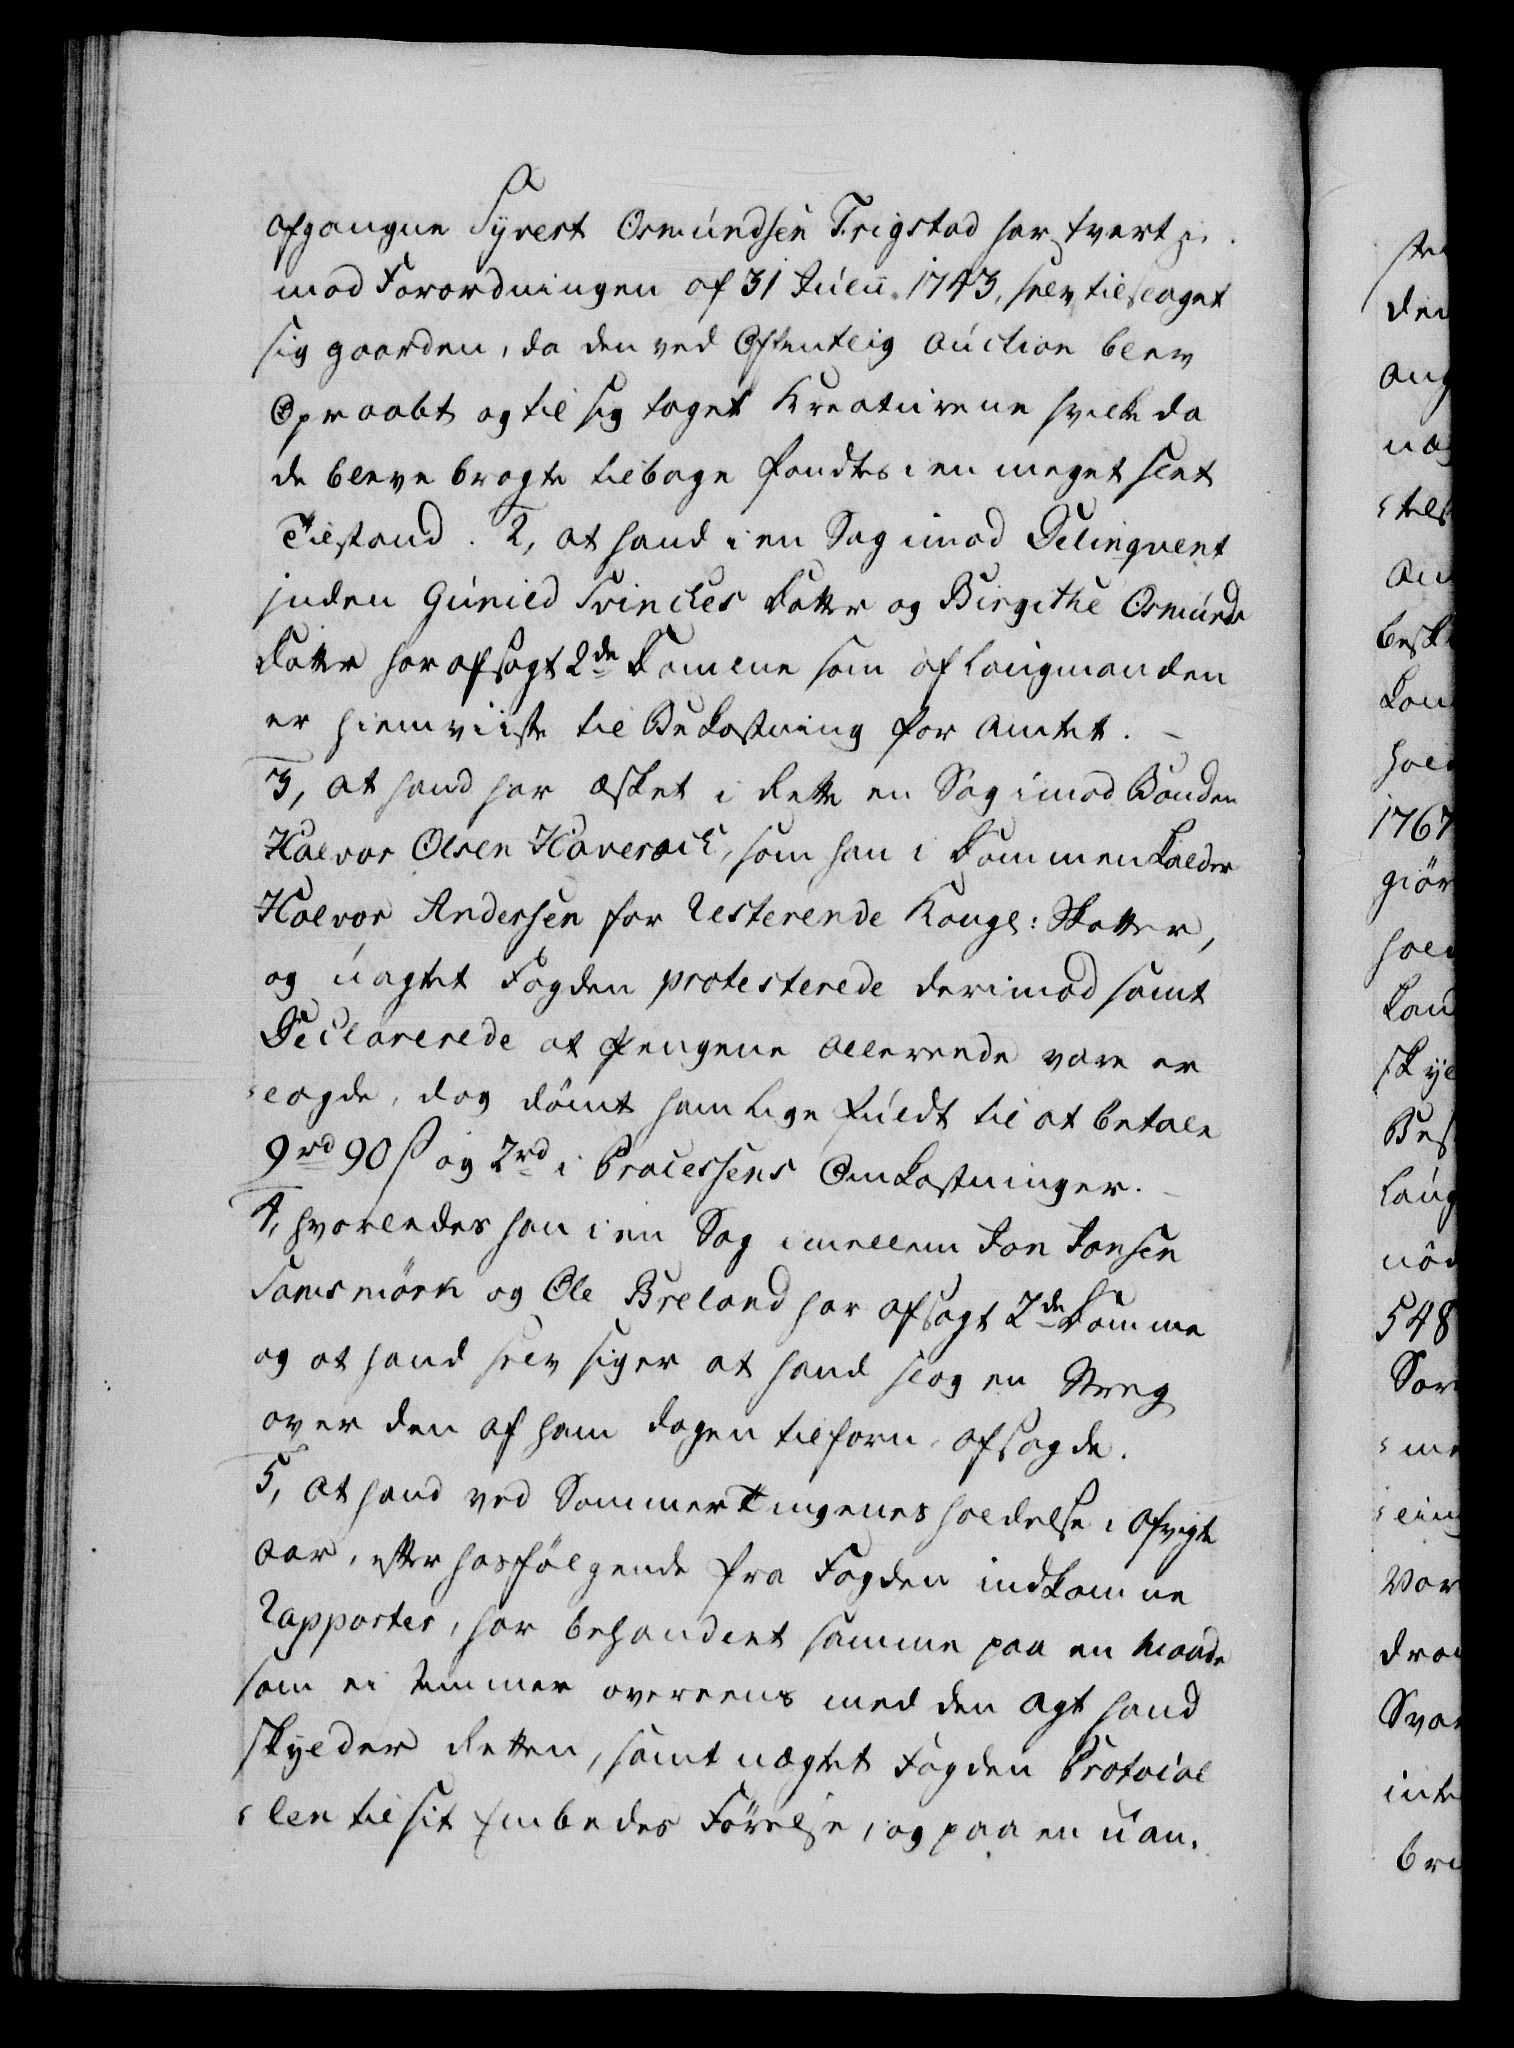 afgangne Syvert Osmundsen Trigstad har tvert i-
mod Forordningen af 31 Julii 1743, selv tilslaget
sig gaarden, da den ved Offentlig Auction blev
Opraabt og til sig taget Kreaturene hvilke da
de bleve bragte tilbage fandtes i en meget slet
Tilstand. 2, at hand i en Sag imod Delinqvent
inden Gunild Svinches Datter og Birgithe Osmunds
Datter har afsagt 2de Domme som af Laugmanden
er hiemviiste til Bekostning for Amtet. -
3, at hand har æsket i Rette en Sag imod Bonden
Halvor Olsen Haveraae, som han i Dommen kalder
Halvor Andersen for Resterende Kongl: Skatter,
og uagtet Fogden protesterede derimod samt
Declarerede at Pengene allerende vare er-
lagde, dog dömt ham lige fuldt til at betale
9rd 90 ß og 2rd i Processens Omkostninger. -
4, hvorledes han i en Sag imellem Jon Jonsen
Samsmörk og Ole Breland har afsagt 2de Domme
og at hand selv siger at hand slog en Streg
over den af ham dagen tilforn afsagde.
5, At hand ved Sommertingenes holdelse i Afvigte
Aar, efter hosfölgende fra Fogden indkomne
Rapporter, har behandlet samme paa en Maade
som ei kommer overeens med den Agt hand
skylder Retten, samt nægtet Fogden Protocol
len til sit Embedes Förelse, og paa en uan-